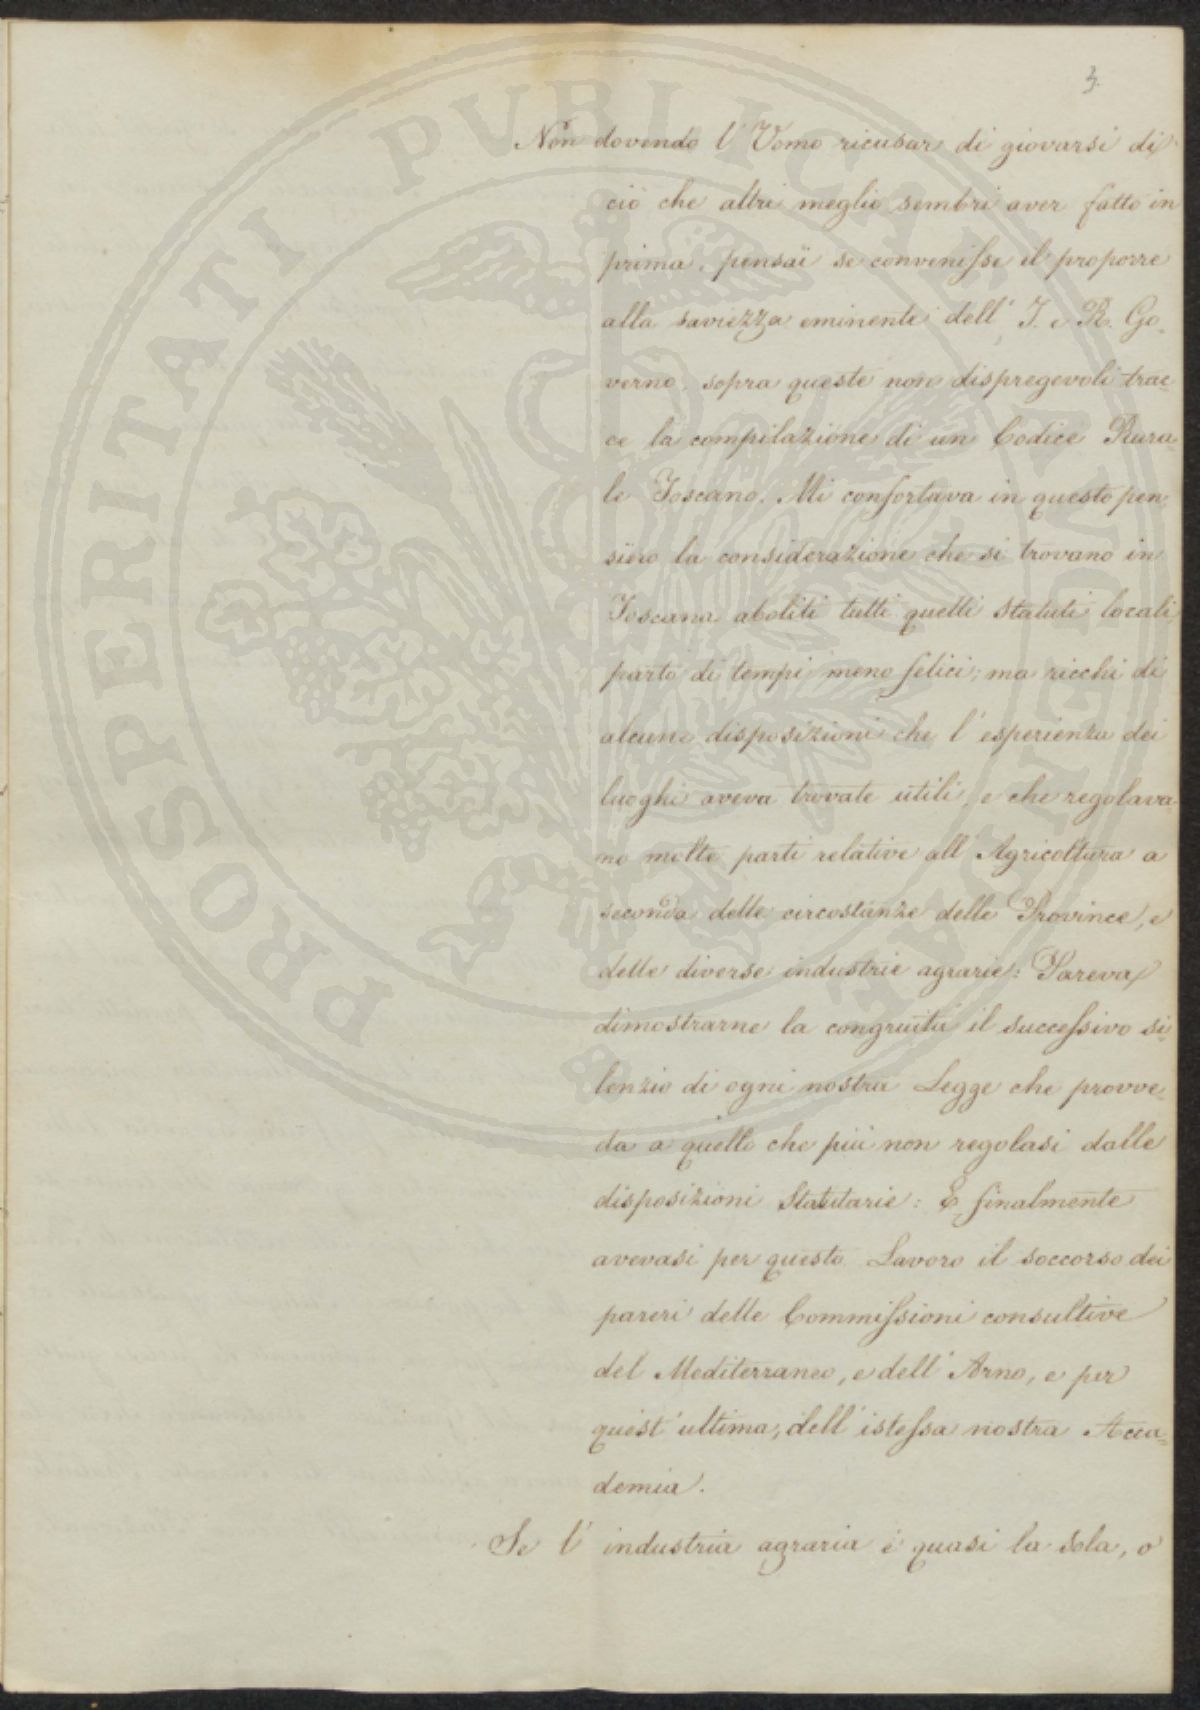 3.
Non dovendo l'Uomo ricusar di giovarsi di
ciò che altri meglio sembri aver fatto in
prima, pensai se convenisse il proporre
alla saviezza eminente dell' I. e R. Go-
verno, sopra queste non dispregevoli trac-
ce la compilazione di un Codice Rura-
le Toscano. Mi confortava in questo pen-
siero la considerazione che si trovano in
Toscana aboliti tutti quelli Statuti locali
parto di tempi meno felici; ma ricchi di
alcune disposizioni che l'esperienza dei
luoghi aveva trovate utili, e che regolava-
no molte parti relative all'Agricoltura a
seconda delle circostanze delle Province, e
delle diverse industrie agrarie: Pareva
dimostrarne la congruità il successivo si-
lenzio di ogni nostra Legge che provve-
da a quello che più non regolasi dalle
disposizioni Statutarie: E finalmente
avevasi per questo Lavoro il soccorso dei
pareri delle Commissioni consultive
del Mediterraneo, e dell'Arno, e per
quest'ultima, dell'istessa nostra Acca-
demia.
Se l'industria agraria è quasi la sola, o
PROSPERITATI PUBLICAE AUGENDAE